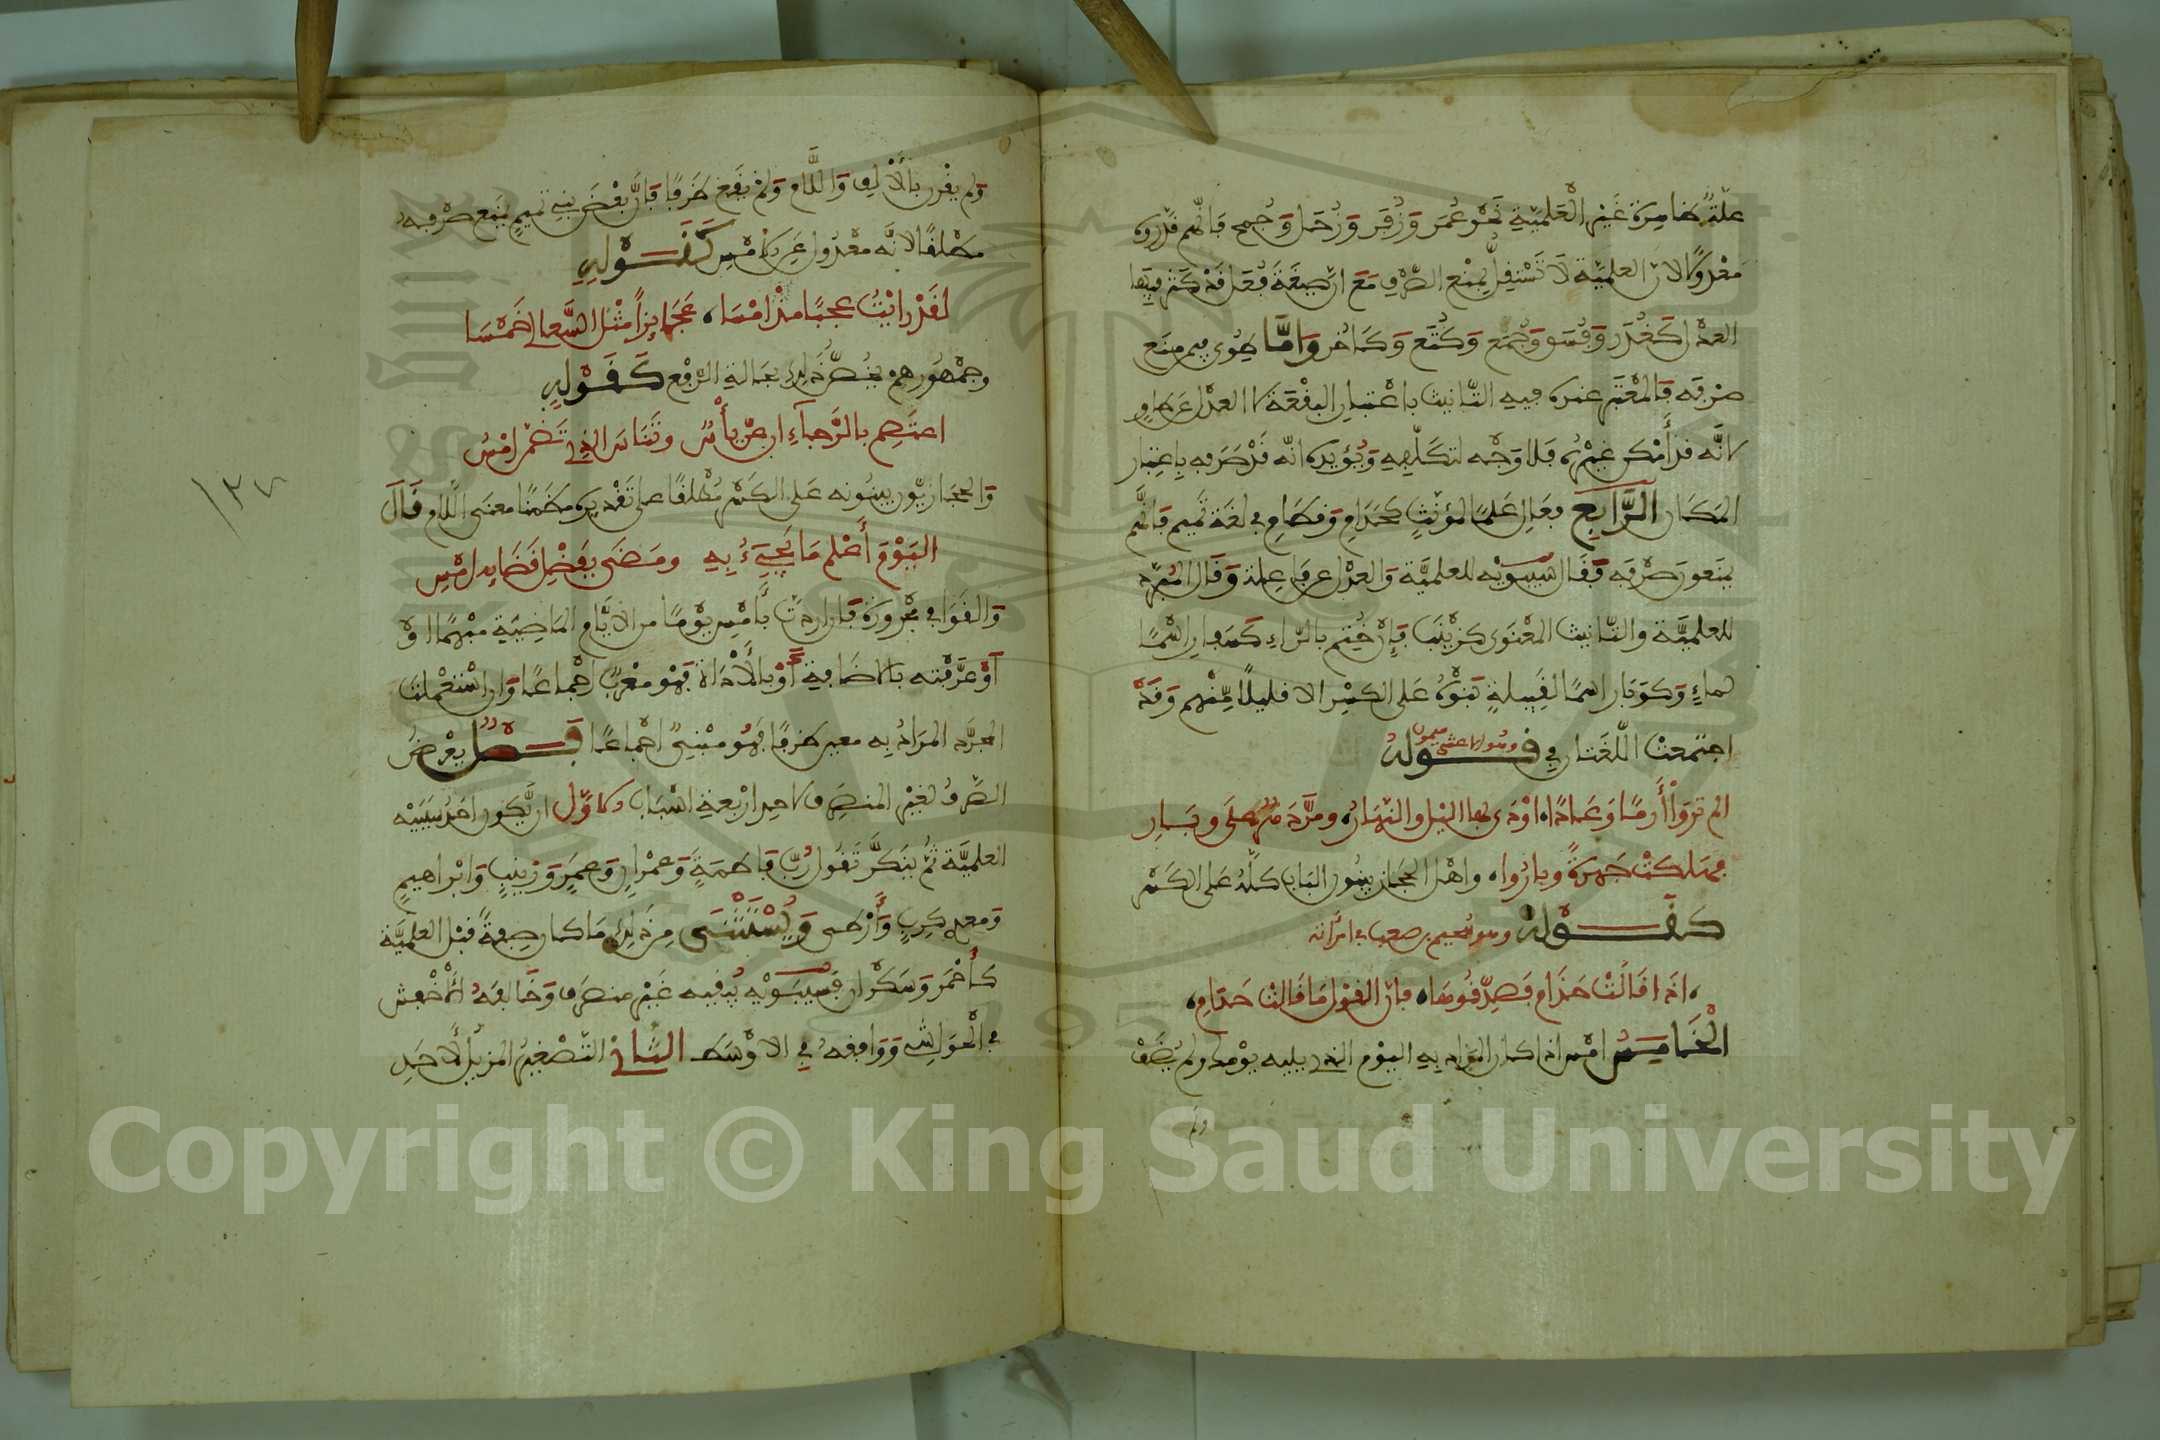 علّة ظاهرة غير العلمية نحو عُمَر وَزُفَر وَزُحَل وَجُمح فانهم قدّروه
معدولا لان العلمية لا تستقلّ بمنع الصّرف مَعَ ان صيغة فُعَل قد كثر فيها
العدل كَغُدَر وَفُسَق وَجُمَع وَكُتَع وَكَأُخر وَامَّا طوى فيمن منع
صرفه فالمعتبر عنده فيه التانيث باعتبار البقعة لا العدل عن طاوٍ
لانَّه قد أمكن غيرُه فلا وَجْه لتكلّفه وَيُؤيده انه قد صُرف باعتبار
المكان الرَّابع فعال علمًا لمؤنثٍ كحذام وقطام في لغة تميم فانَّهم
يمنعون صرفه فقال سيبويه للعلميَّة والعدل عن فاعلة وقال المبرّد
للعلميَّة والتانيث المعنوى كزينب فإن خُتم بالراء كسفار اسمًا
لماءٍ وكوبار اسمًا لقبيلةٍ بَنَوْهُ على الكسر الا قليلًا منهم وقد
اجتمعت اللّغتان في قـوله وهو الاعشى ميمون
الم تروا أرمًا وعادًا، اودى بها اليل والنهار، ومرّ دهر على وبار
فهلكت جهرةً وبارُ، واهل الحجاز يبنون الباب كلّه على الكسر
كقـوله وهو لجيم بن صعب في امرأته
، اذا قالت حذام فصدّقوها، فان القول ما قالت حذام،
الخامس امس اذا كان المراد به اليوم الذي يليه يومك ولم يُضَف
ولم
ولم يقرن بالألف واللَّام ولم يقع ظرفًا فإنَّ بعض بني تميم يمنع صرفه
مطلقًا لانَّه معدول عن الامس كقـوله
لقد رايتُ عجبًا مذ امسا، عجايزًا مثل السَّعالي خمسا
وجمهورهم يخصّ ذلك بحالة الرفع كقـوله
اعتصم بالرَّجاء ان عنّ يأسُ وتناس الذي تضمّن امسُ
والحجازيّون يبنونه على الكسر مطلقًا على تقديره مضمنًا معنى اللّام قال
اليوم أعلم ما يجيءُ به ومضى بفضل قضايه امس
والقوافي مجرورة فان اردتّ بأمس يومًا من الايّام الماضية مبهمًا او
او عرّفته بالاضافة أو بالأداة فهو معربٌ اجماعًا وان استعملت
المجرّد المراد به معين ظرفًا فهو مبنيٌّ اجماعًا فـصل يعرضُ
الصّرفُ لغير المنصرف لاحد اربعة اسْباب الاوّل ان يكون احد سببيه
العلميَّة ثمّ ينكّر تقول ربّ فاطمةٍ وعمرانٍ وعمرٍ وزينبٍ وابراهيمٍ
ومعدي كربٍ وأرطى ويُسْتَثْنى من ذلك ما كان صفةً قبل العلميَّة
كأحمر وسكران فسيبويه يُبقيه غير منصرف وخالفهُ الأخفش
في الحواشي ووافقهُ في الاوسط الثاني التصغير المزيل لأحد
١٣٧
Copyright © King Saud University